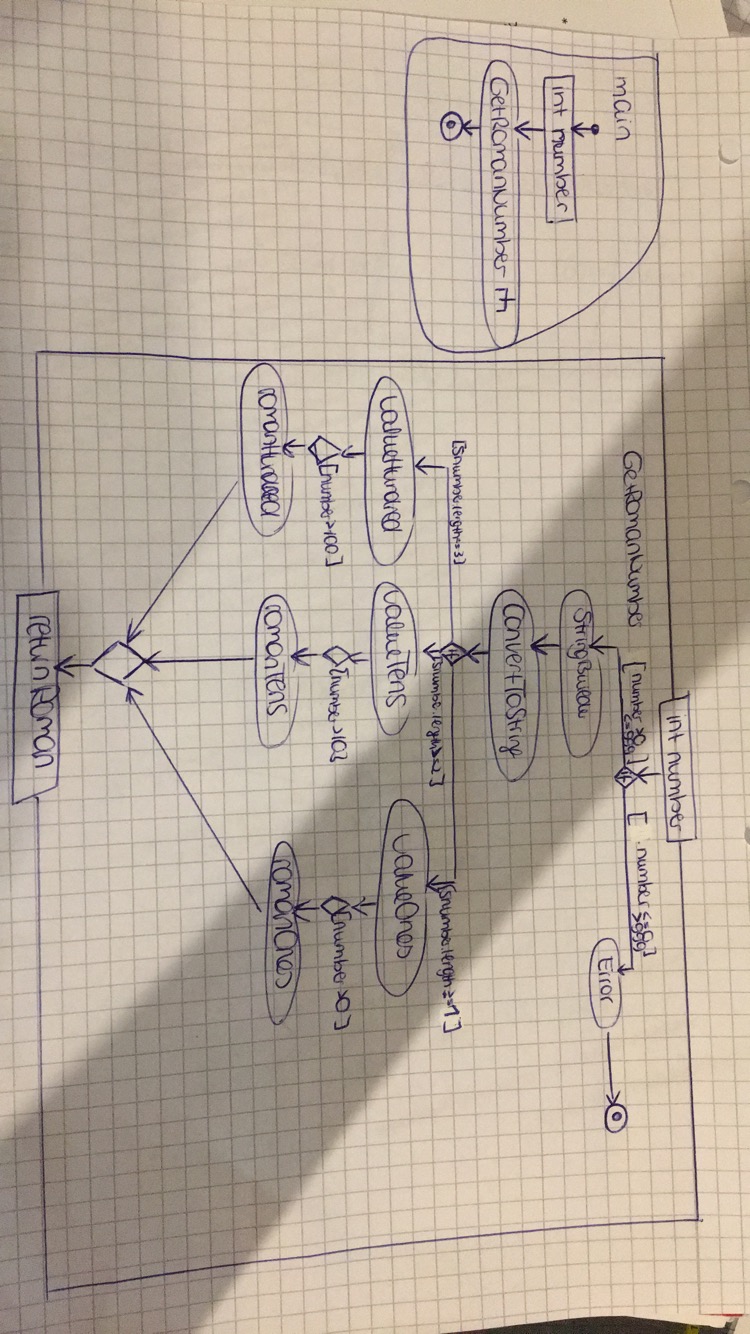 main
int number
GetRomanNumber
int number
GetRomanNumber
[number>0
<=899]
[ .number
Error
ConvertToString
[Snumber.length==3]
[Snumber.length>=2]
[Snumber.length>=1]
valueHundred
valueTens
valueOnes
[number>100]
[number>10]
[number>0]
romanHundred
romanTens
romanOnes
return Roman